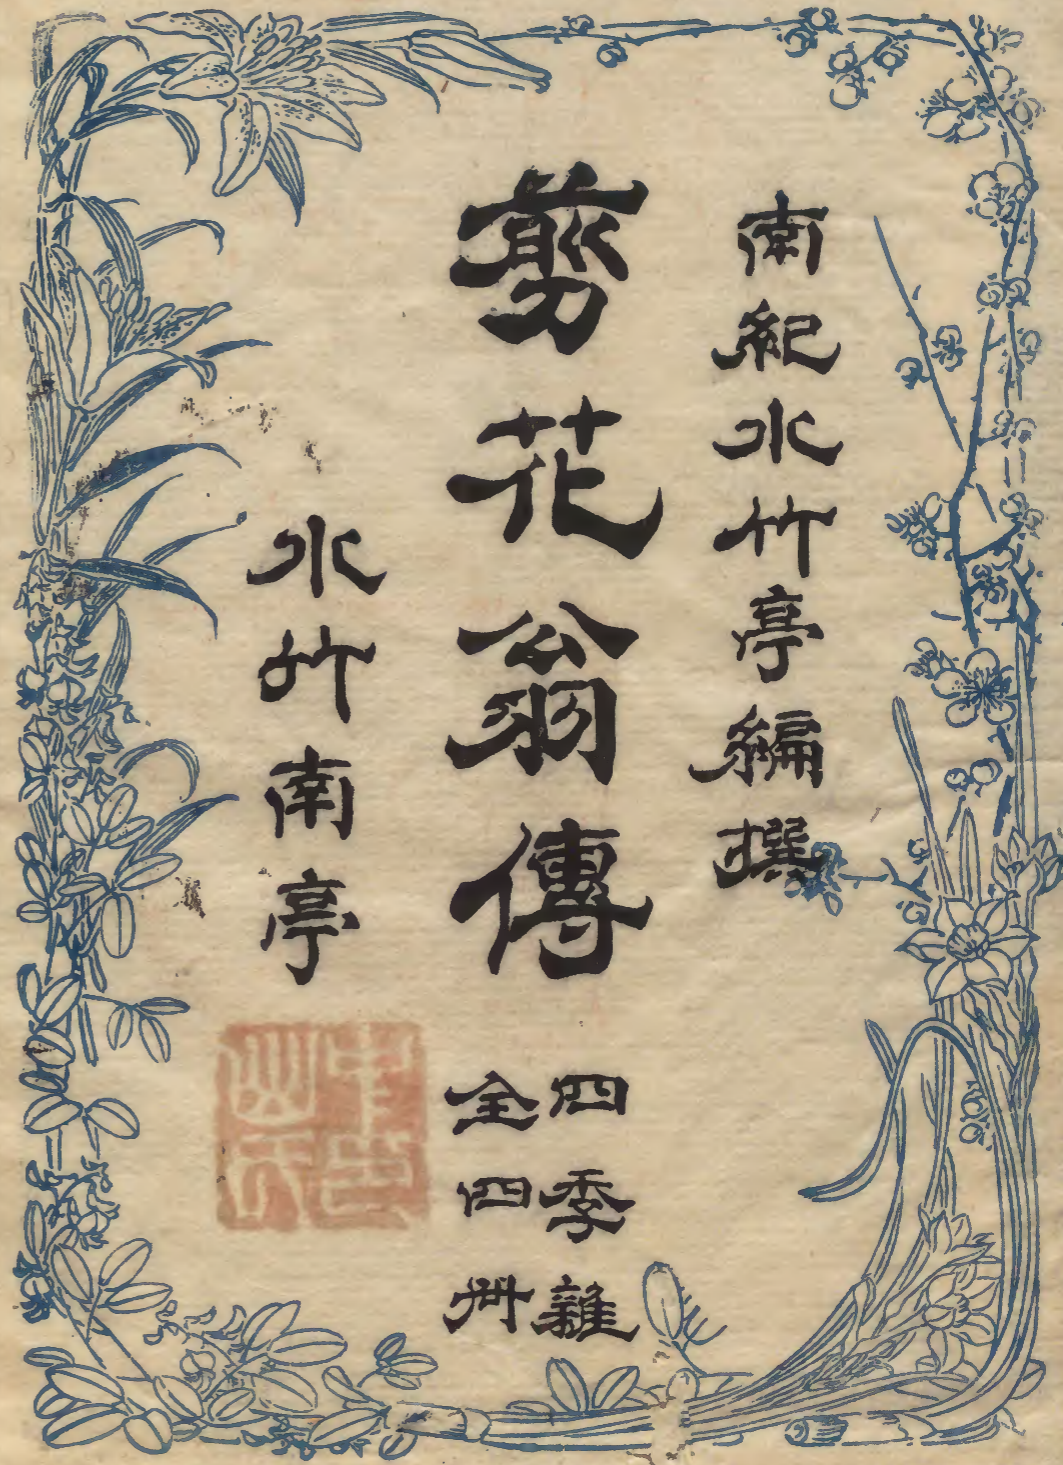 南紀水竹亭編撰
剪花翁傳
四季雜
全四冊
水竹南亭